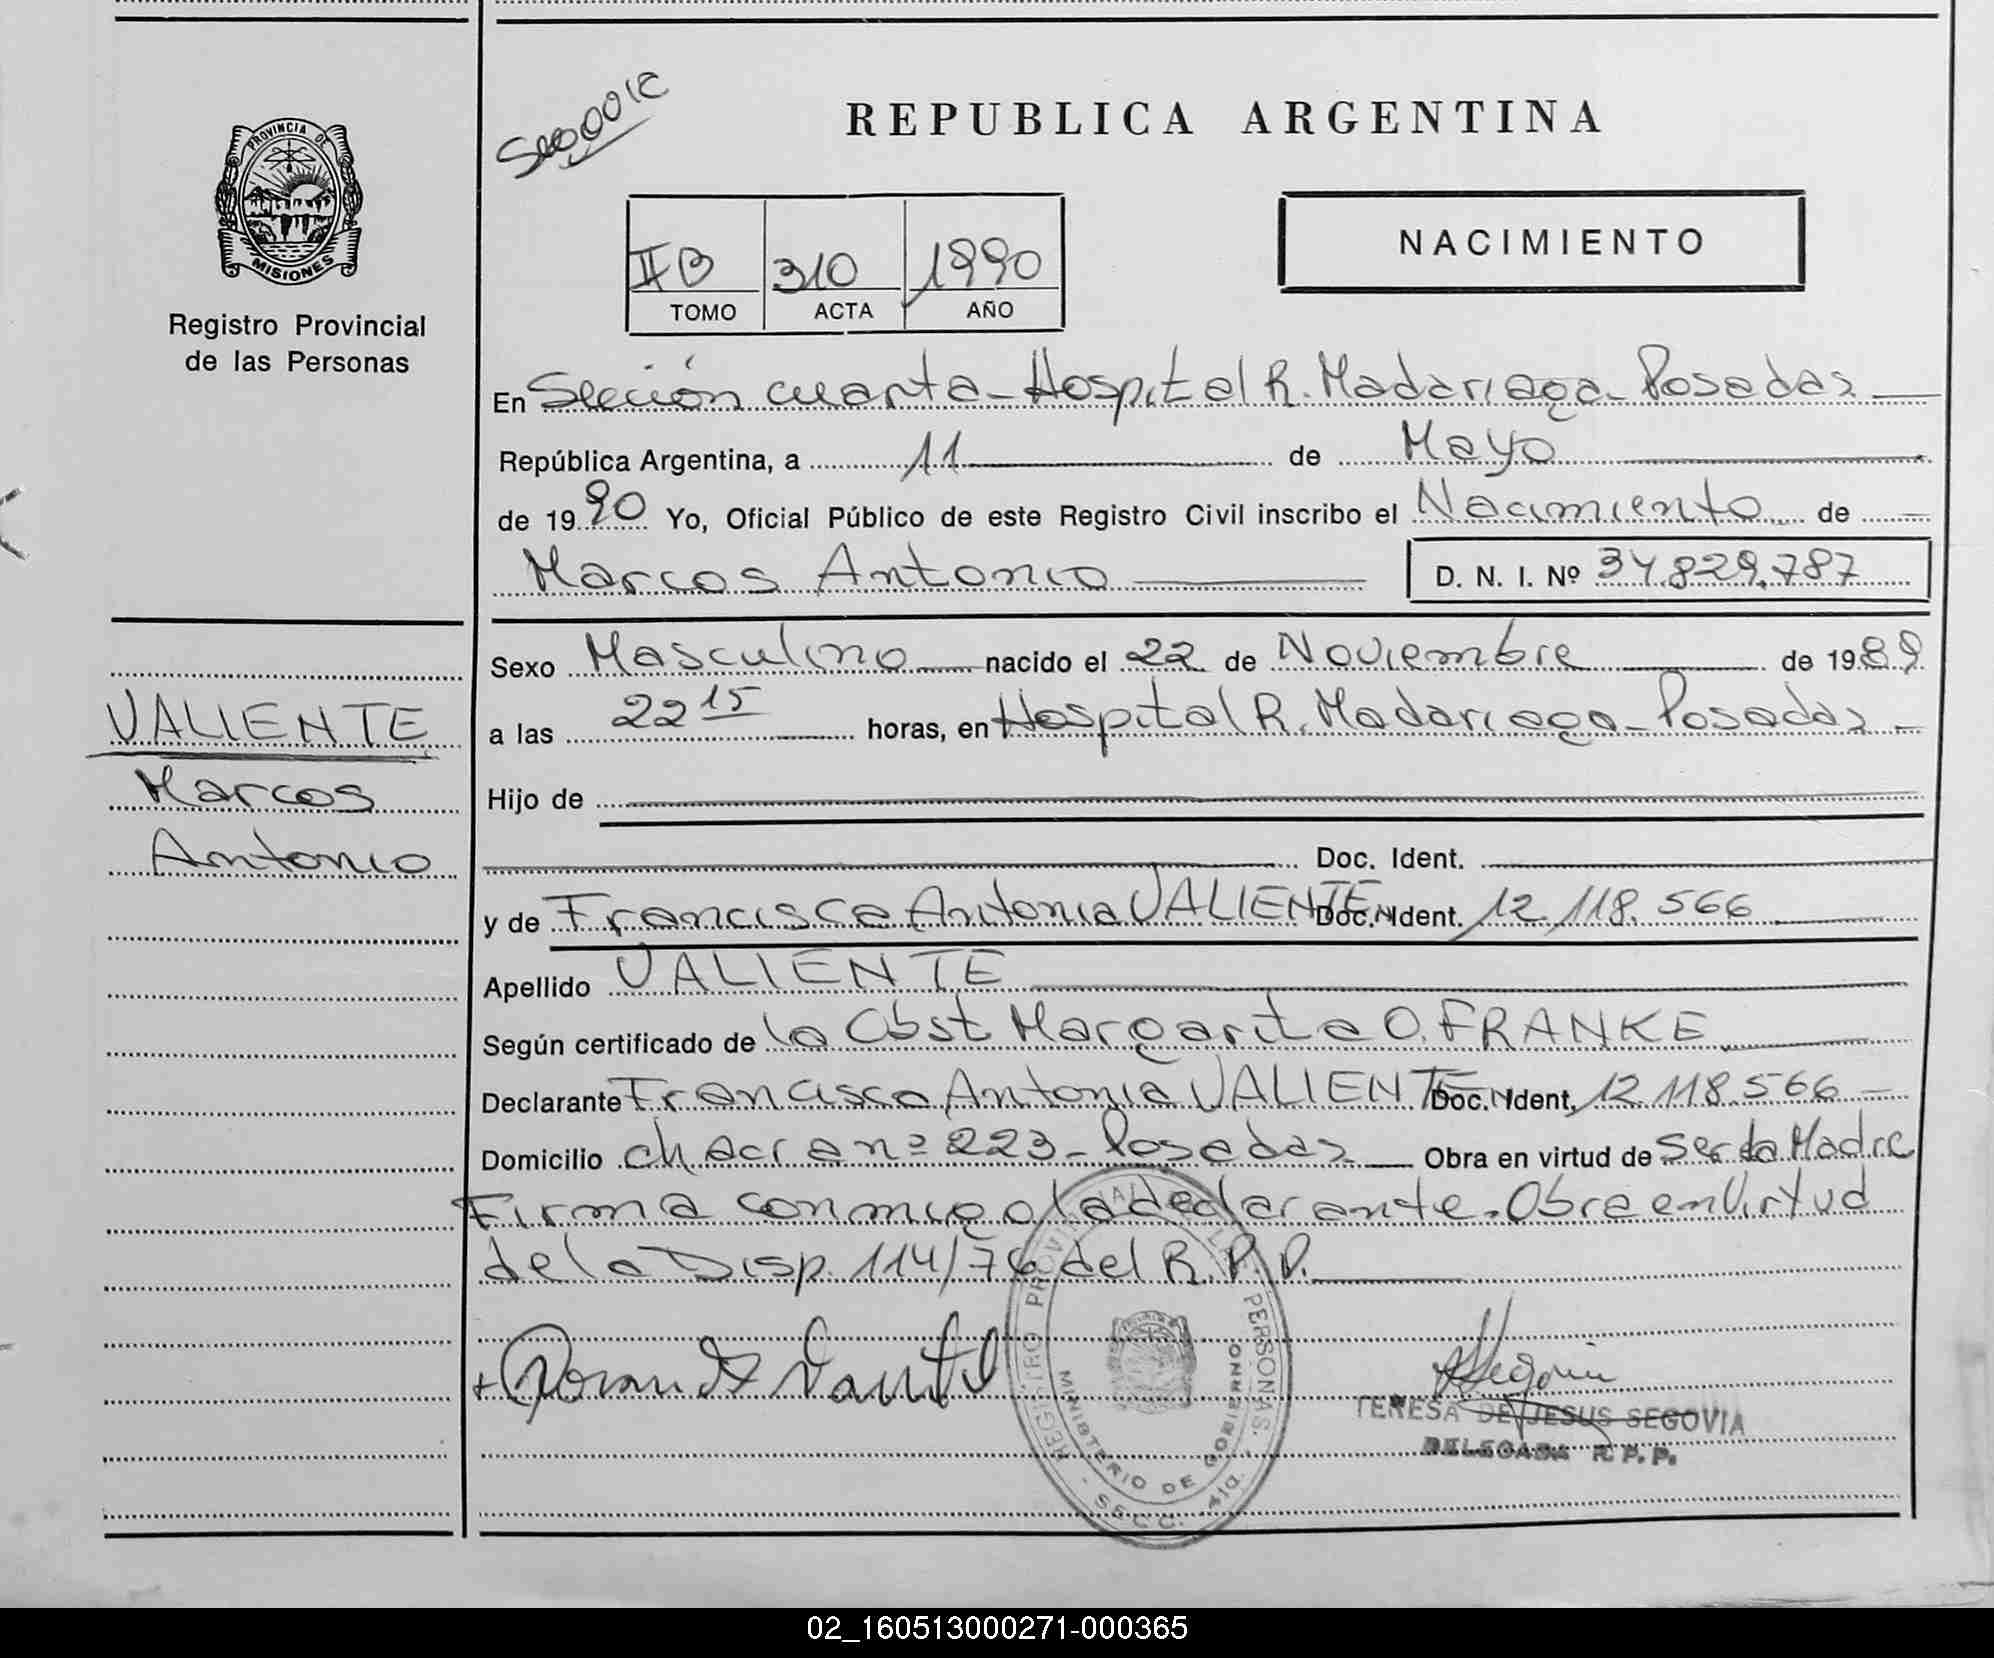 REPUBLICA ARGENTINA
PROVINCIA DE
MISIONES
Registro Provincial
de las Personas
II B 310 1990
TOMO ACTA AÑO
NACIMIENTO
En Sección cuarta - Hospital R. Madariaga - Posadas
República Argentina, a 11 de Mayo
de 1990 Yo, Oficial Público de este Registro Civil inscribo el Nacimiento de
Marcos Antonio D. N. I. Nº 34.829.787
Sexo Masculino nacido el 22 de Noviembre de 1989
VALIENTE
Marcos
Antonio
a las 22 15 horas, en Hospital R. Madariaga - Posadas -
Hijo de
Doc. Ident.
y de Francisca Antonia VALIENTE Doc. Ident. 12.118.566
Apellido VALIENTE
Según certificado de la Obst Margarita O. FRANKE
Declarante Francisca Antonia VALIENTE Doc. Ident. 12.118.566 -
Domicilio chacra nº 223 - Posadas Obra en virtud de ser la Madre
Firma conmigo la declarante. Obra en Virtud
de la Disp. 114/76 del R.P.P.
REGISTRO PROVINCIAL DE LAS PERSONAS
MINISTERIO DE GOBIERNO
SECC. 4ta.
TERESA DE JESUS SEGOVIA
DELEGADA R.P.P.
02_160513000271-000365